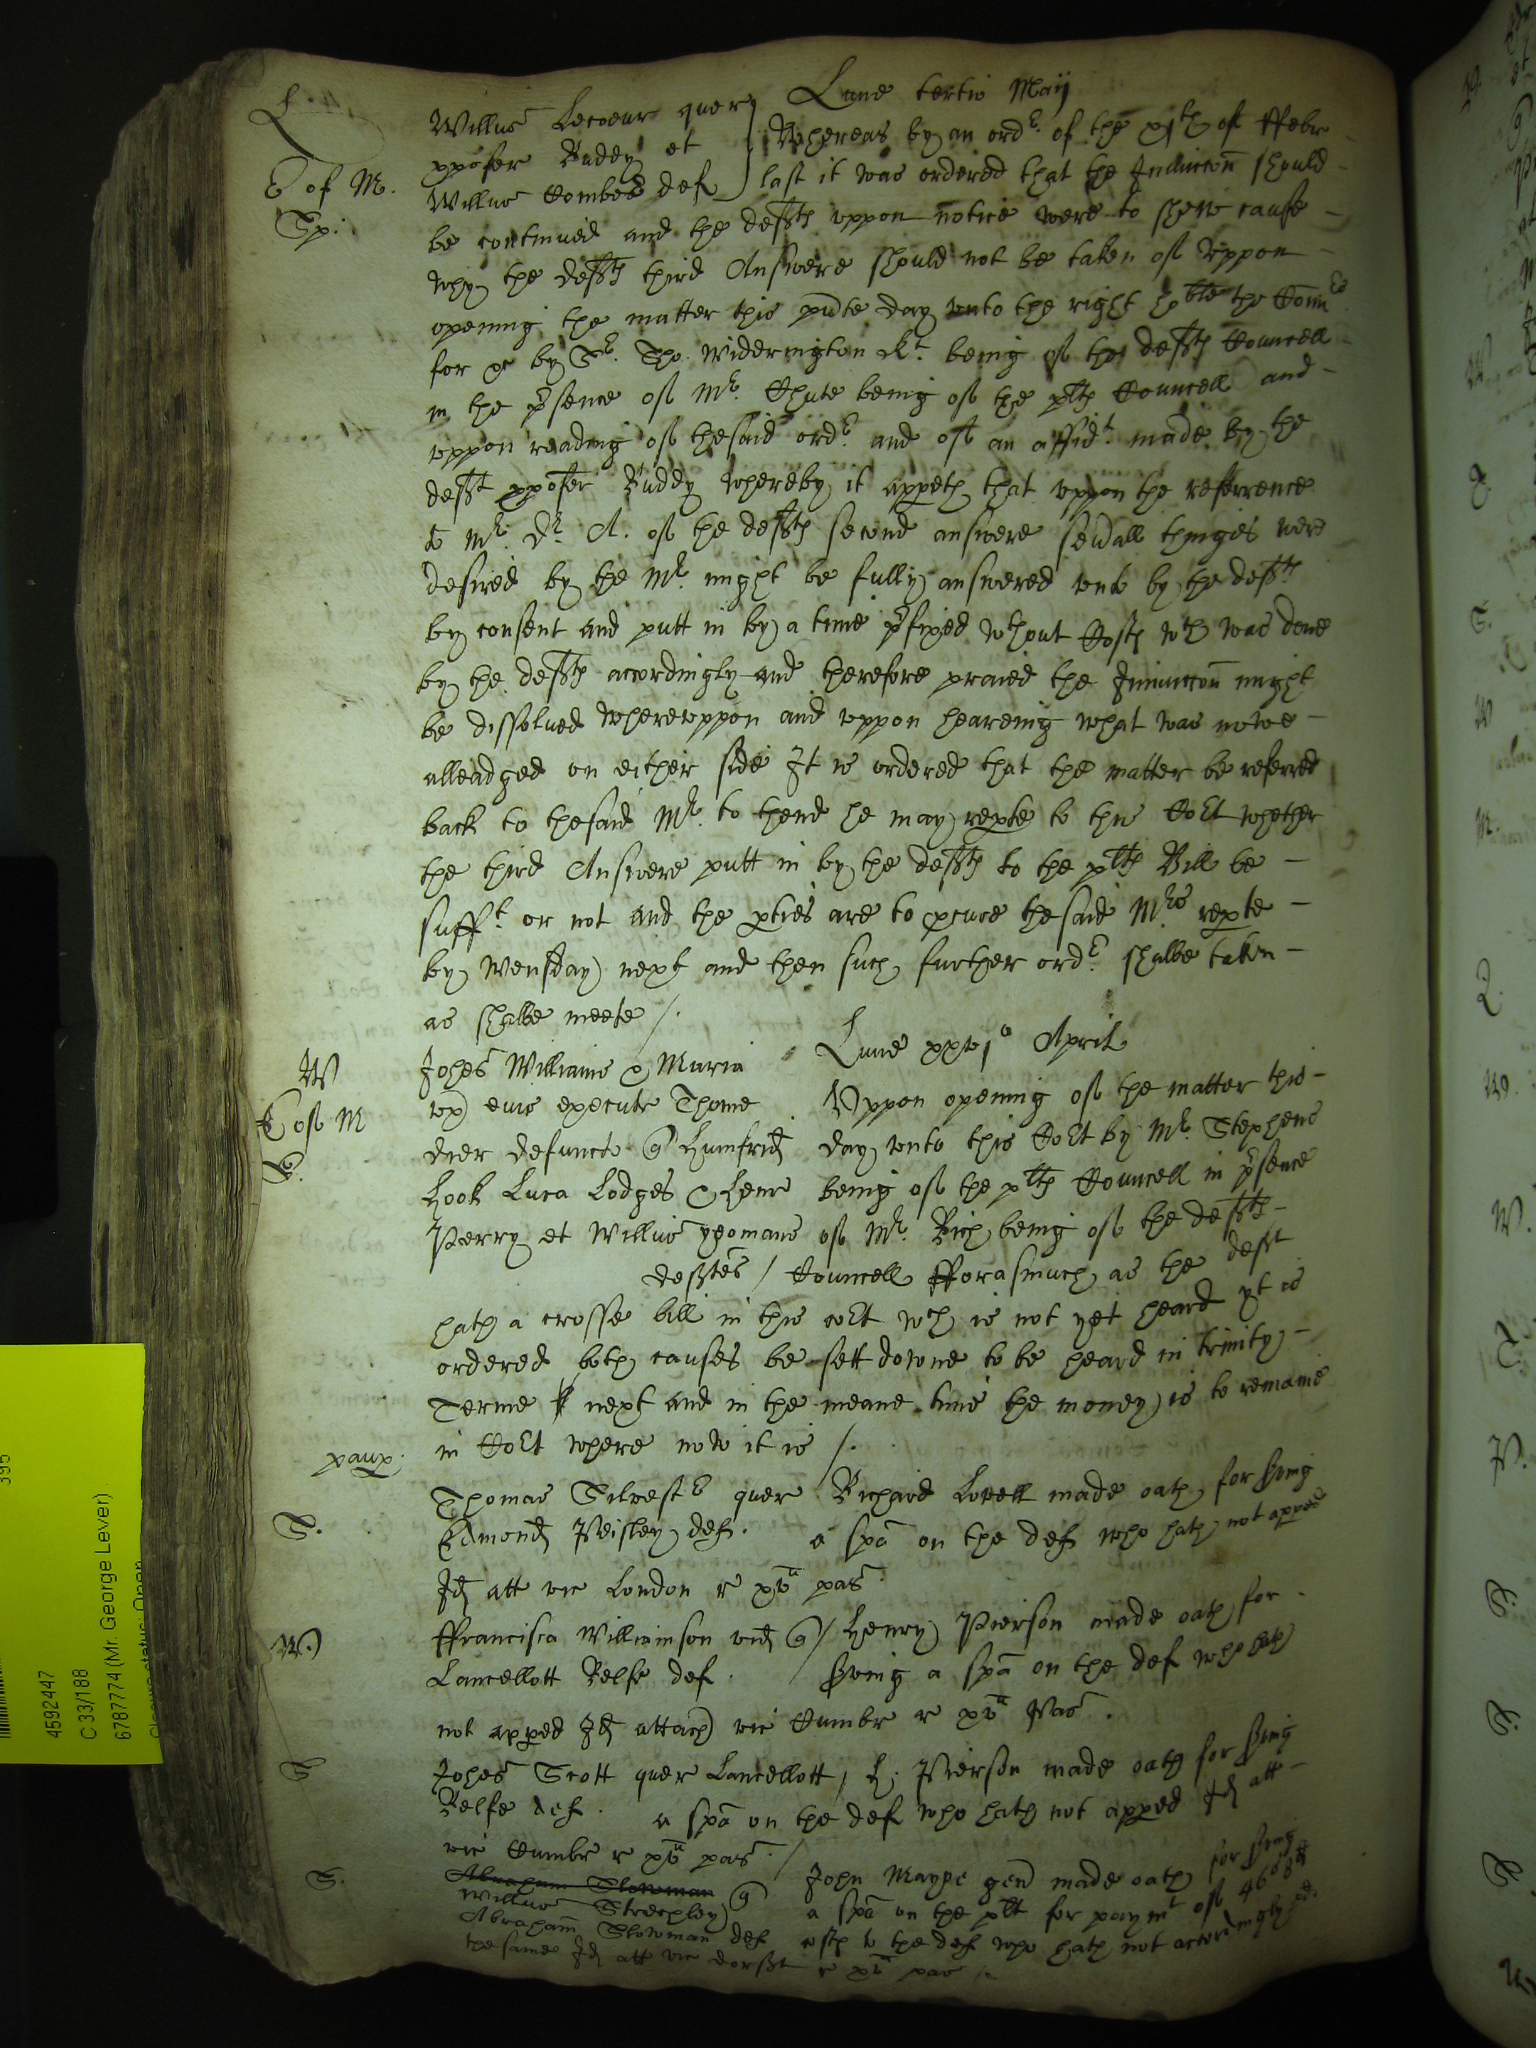 L
Lune tertio Maij
Willus Lecoeur quer
xpofer Buddey et
Willus Combes def
C of M.
Sp:
Whereas by an ordr. of the xjth of ffebr
last it was ordered that the Iniunccon should
be continued and the defts uppon notice were to shew cause
why the defts third Answere should not be taken of Uppon
opening the matter this pnte day unto the right hoble the Comrs
for &c by Sr. Tho. Widerington Kt. being of the defts Councell
in the psence of Mr. Chute being of the plts Councell and
uppon reading of thesaid ordr. and of an affidt. made by the
deft xpofer Buddy whereby it appeth that uppon the referrence
to Mr. Dr. A. of the defts second answere seuall thinges were
desired by the Mr. might be fully answered unto by the defts
by consent and putt in by a time pfixed wthout Costs wch was done
by the defts accordingly and therefore praied the Iniunccon might
be dissolved whereuppon and uppon heareing what was nowe
alleadged on either side It is ordered that the matter be referred
back to thesaid Mr. to thend he may repte to this Cort whether
the third Answere putt in by the defts to the plts Bill be
sufft. or not and the pties are to pcure thesaid Mrs repte
by Wensday next and then such further ordr. shalbe taken
as shalbe meete /.
W
C of M
Lune xxvjo April
Johes Williams & Maria
ux eius execute Thome
Dier defunct q Humfrid
Hook Luca Lodges & Henr
Perry et Willus yeomans
deftes /
Uppon opening of the matter this
day unto this Cort by Mr. Stephens
being of the plts Councell in psence
of Mr. Rich being of the defts
Councell fforasmuch as the deft
hath a crosse bill in this cort wch is not yet heard yt is
ordered both causes be sett downe to be heard in Trinity
Terme next and in the meane time the money is to remaine
in Cort where now it is /.
paup.
S.
Thomas Silvestr quer
Edmond Peisley def.
Richard Lovell made oath for sving
a spa on the def who hath not apped
Id att vic London r xva pas
W.
ffrancisca Williamson vid q
Lancellott Relfe def.
Henry Pierson made oath for
sving a spa on the def who hath
not apped Id attach vic Cumbr r xva Pas.
S
Johes Scott quer Lancellott
Relfe def.
H. Pierson made oath for sving
a spa on the def who hath not apped Id att
vic Cumbr r xva pas. /
S.
Abraham Plowman
Willus Strechley q
Abraham Plowman def
John Maype gen made oath for sving
a spa on the plt for paymt of 46s 8d
costs to the def who hath not accordingly pd.
the same Id att vic dorset r xva pas /.
395
4592447
C 33/188
6787774 (Mr. George Lever)
Closure status: Open